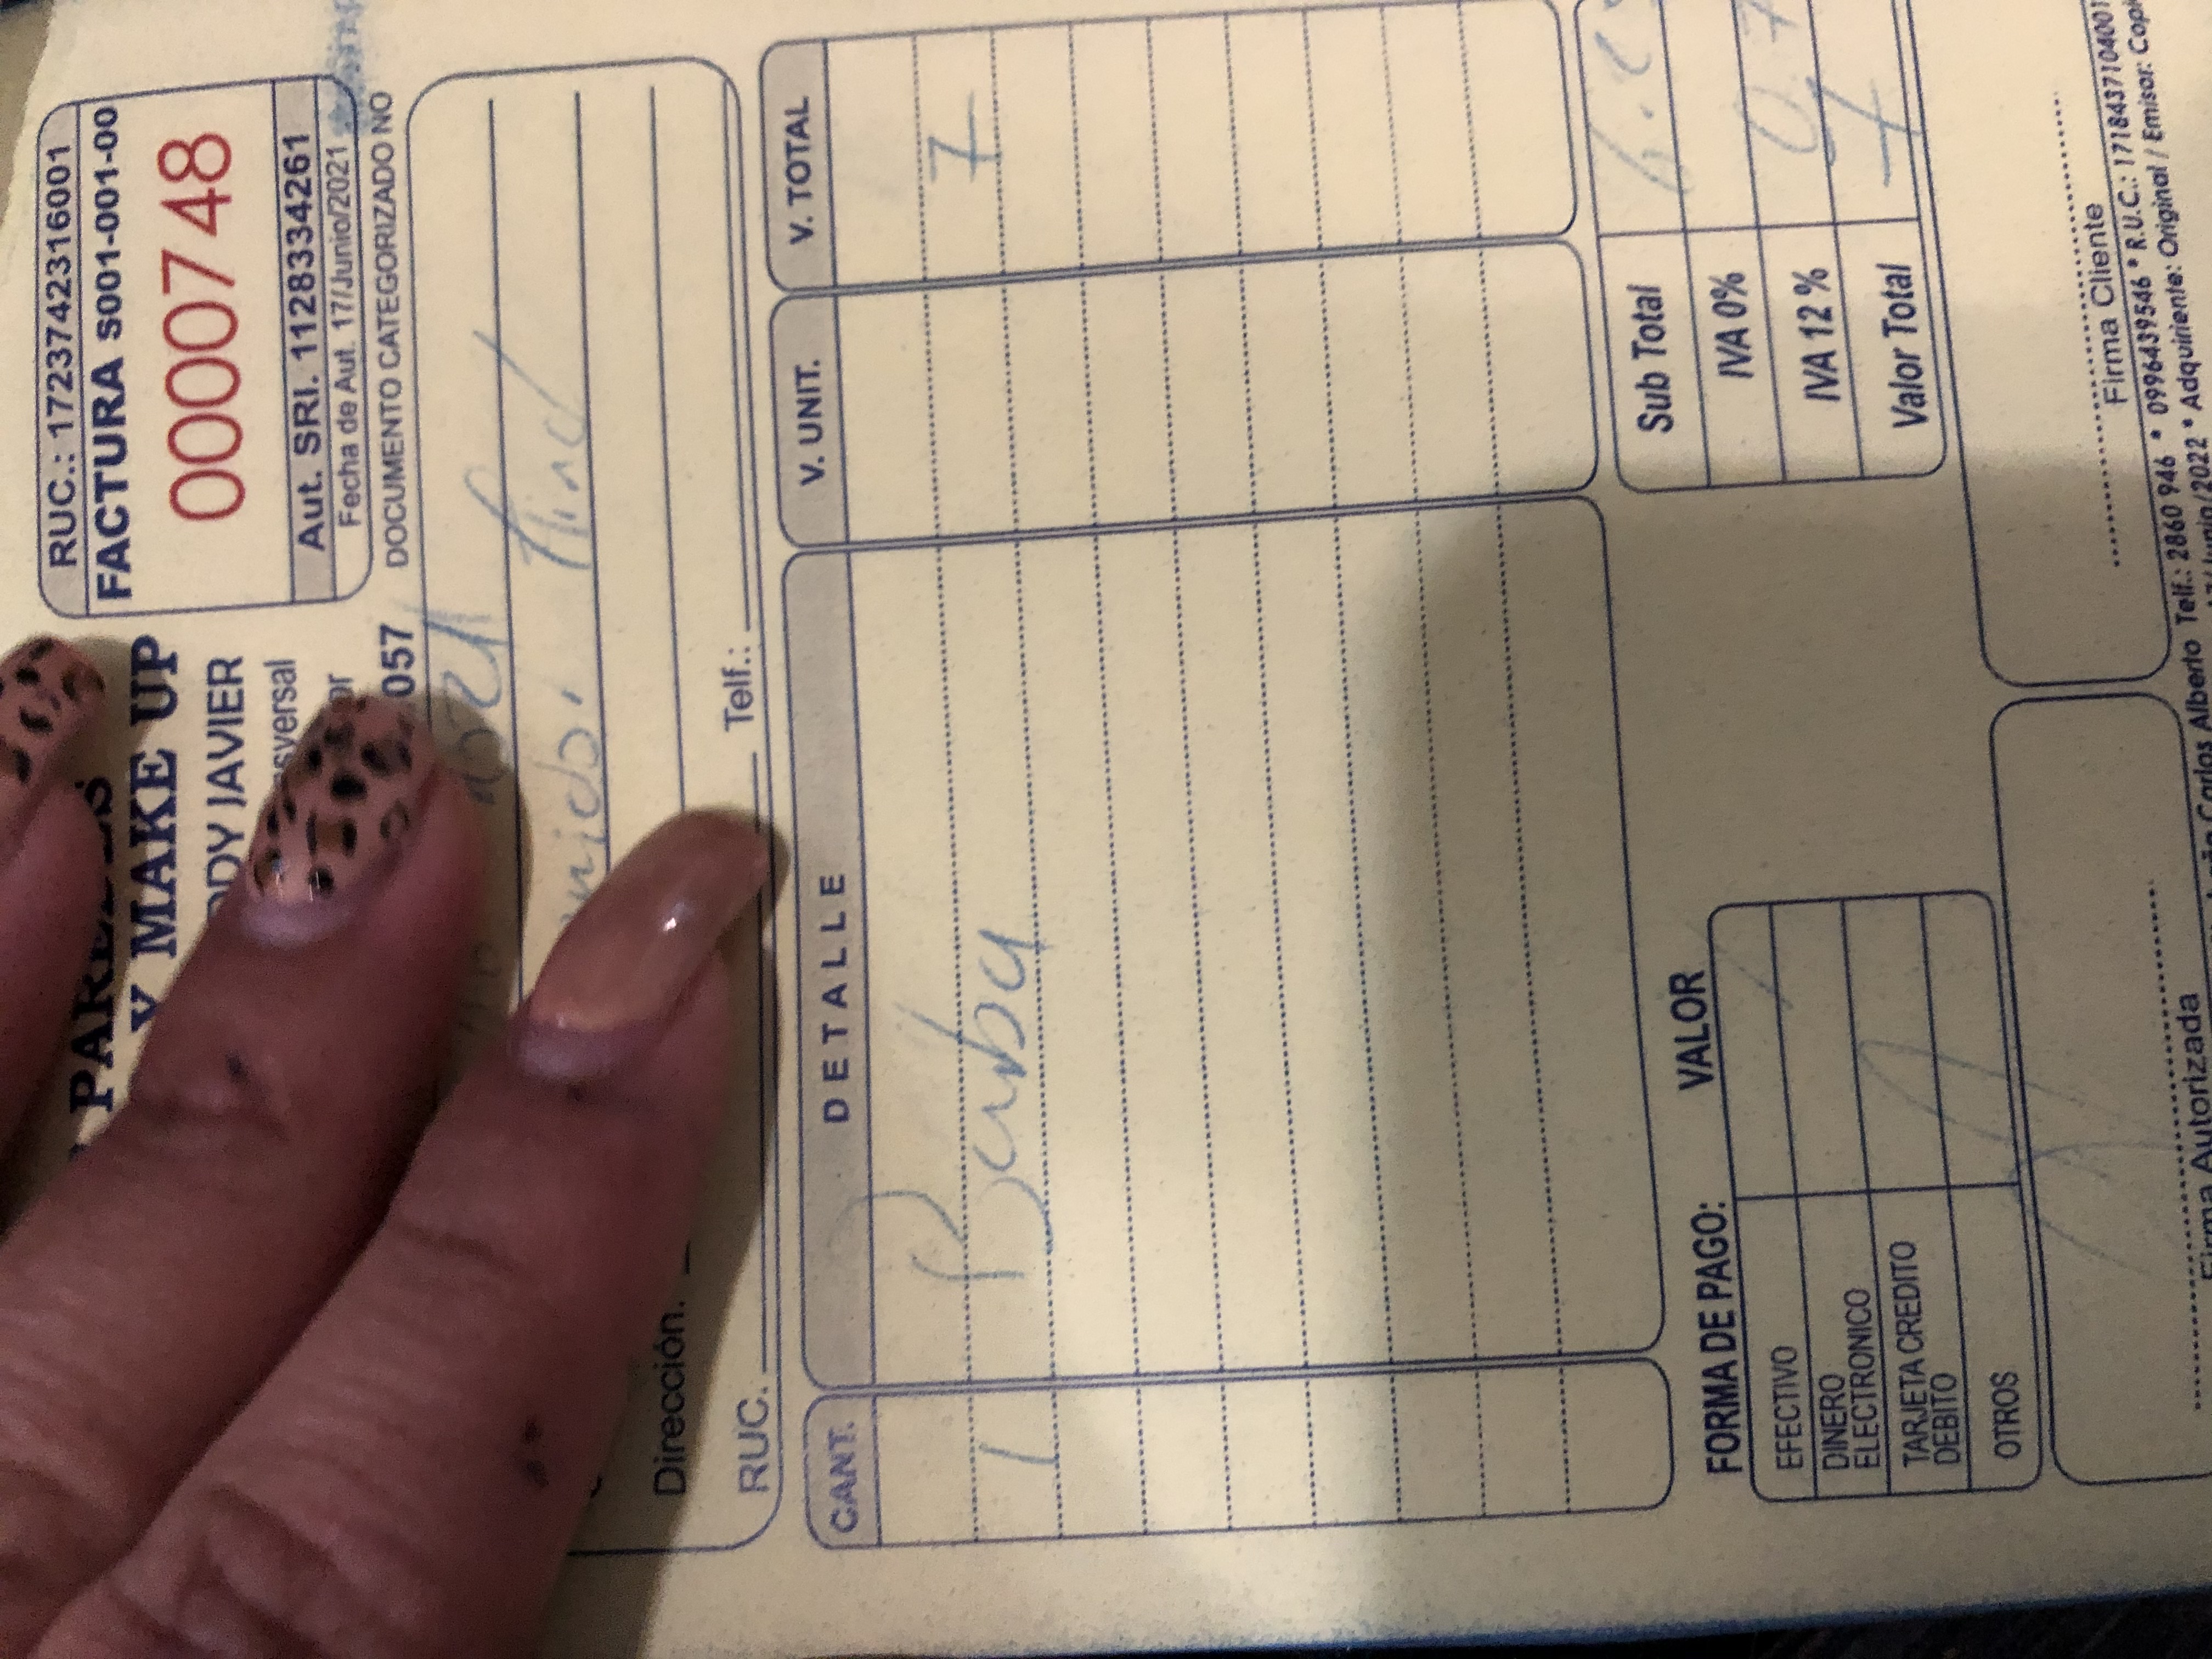 PAREDES
Y MAKE UP
DY JAVIER
sversal
or
057
RUC.: 1723742316001
FACTURA S001-001-00
0000748
Aut. SRI. 1128334261
Fecha de Aut. 17/Junio/2021
DOCUMENTO CATEGORIZADO NO
2021
Dirección.
RUC. Telf.:
CANT. DETALLE V. UNIT. V. TOTAL
1 Barba 7
Sub Total 6.25
IVA 0%
IVA 12 % 0.7
Valor Total 7
FORMA DE PAGO: VALOR
EFECTIVO /
DINERO
ELECTRONICO
TARJETA CREDITO
DEBITO
OTROS
Firma Autorizada
Firma Cliente
Carlos Alberto Telf.: 2860 946 * 0996439546 * R.U.C.: 1718437104001
17/Junio/2022 * Adquiriente: Original / Emisor: Copi